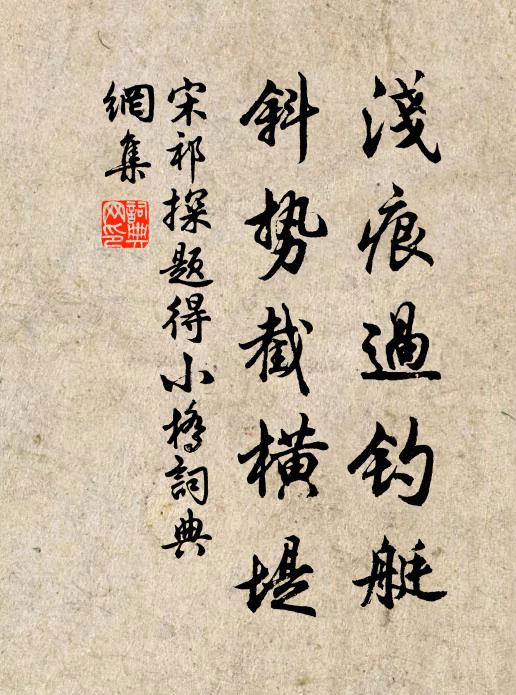 淺痕過釣艇
斜势截橫堤
宋祁探題得小橋詞典
網集
詞典
网印